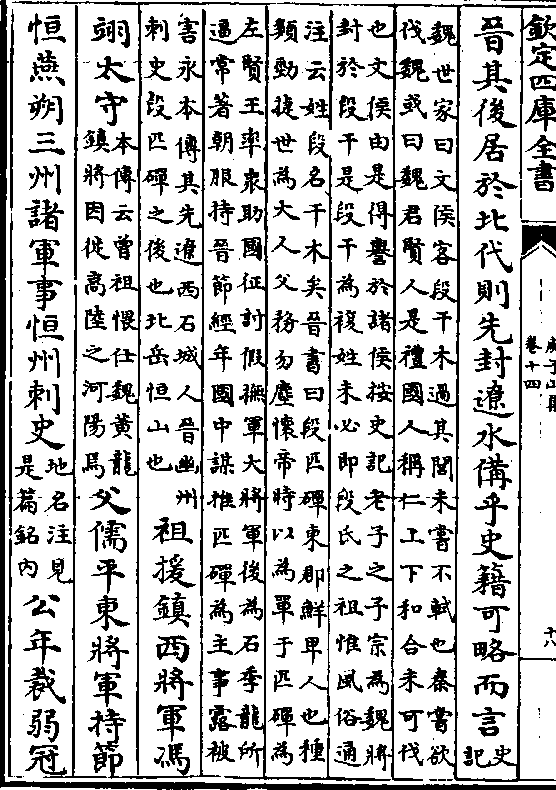 欽定四庫全書
卷十四
十八
晉其後居於北代則先封遼水備乎史籍可略而言史記
魏世家曰文侯客段干木過其閭未嘗不軾也秦嘗欲
伐魏或曰魏君賢人是禮國人稱仁上下和合未可伐
也文侯由是得譽於諸侯按史記老子之子宗為魏將
封於段干是段干為複姓未必即段氏之祖惟風俗通
注云姓段名干木矣晉書曰段匹磾東郡鮮卑人也種
類勁捷世為大人父務勿塵懷帝時以為單于匹磾為
左賢王率衆助國征討假撫軍大將軍後為石季龍所
逼常著朝服持晉節經年國中謀推匹磾為主事露被
害永本傳其先遼西石城人晉幽州
刺史段匹磾之後也北岳恒山也
祖援鎮西將軍馮
翊太守
本傳云曾祖愄仕魏黃龍
鎮將因徙高陸之河陽焉
父儒平東將軍持節
恒燕朔三州諸軍事恒州刺史
地名注見
是篇銘內
公年裁弱冠